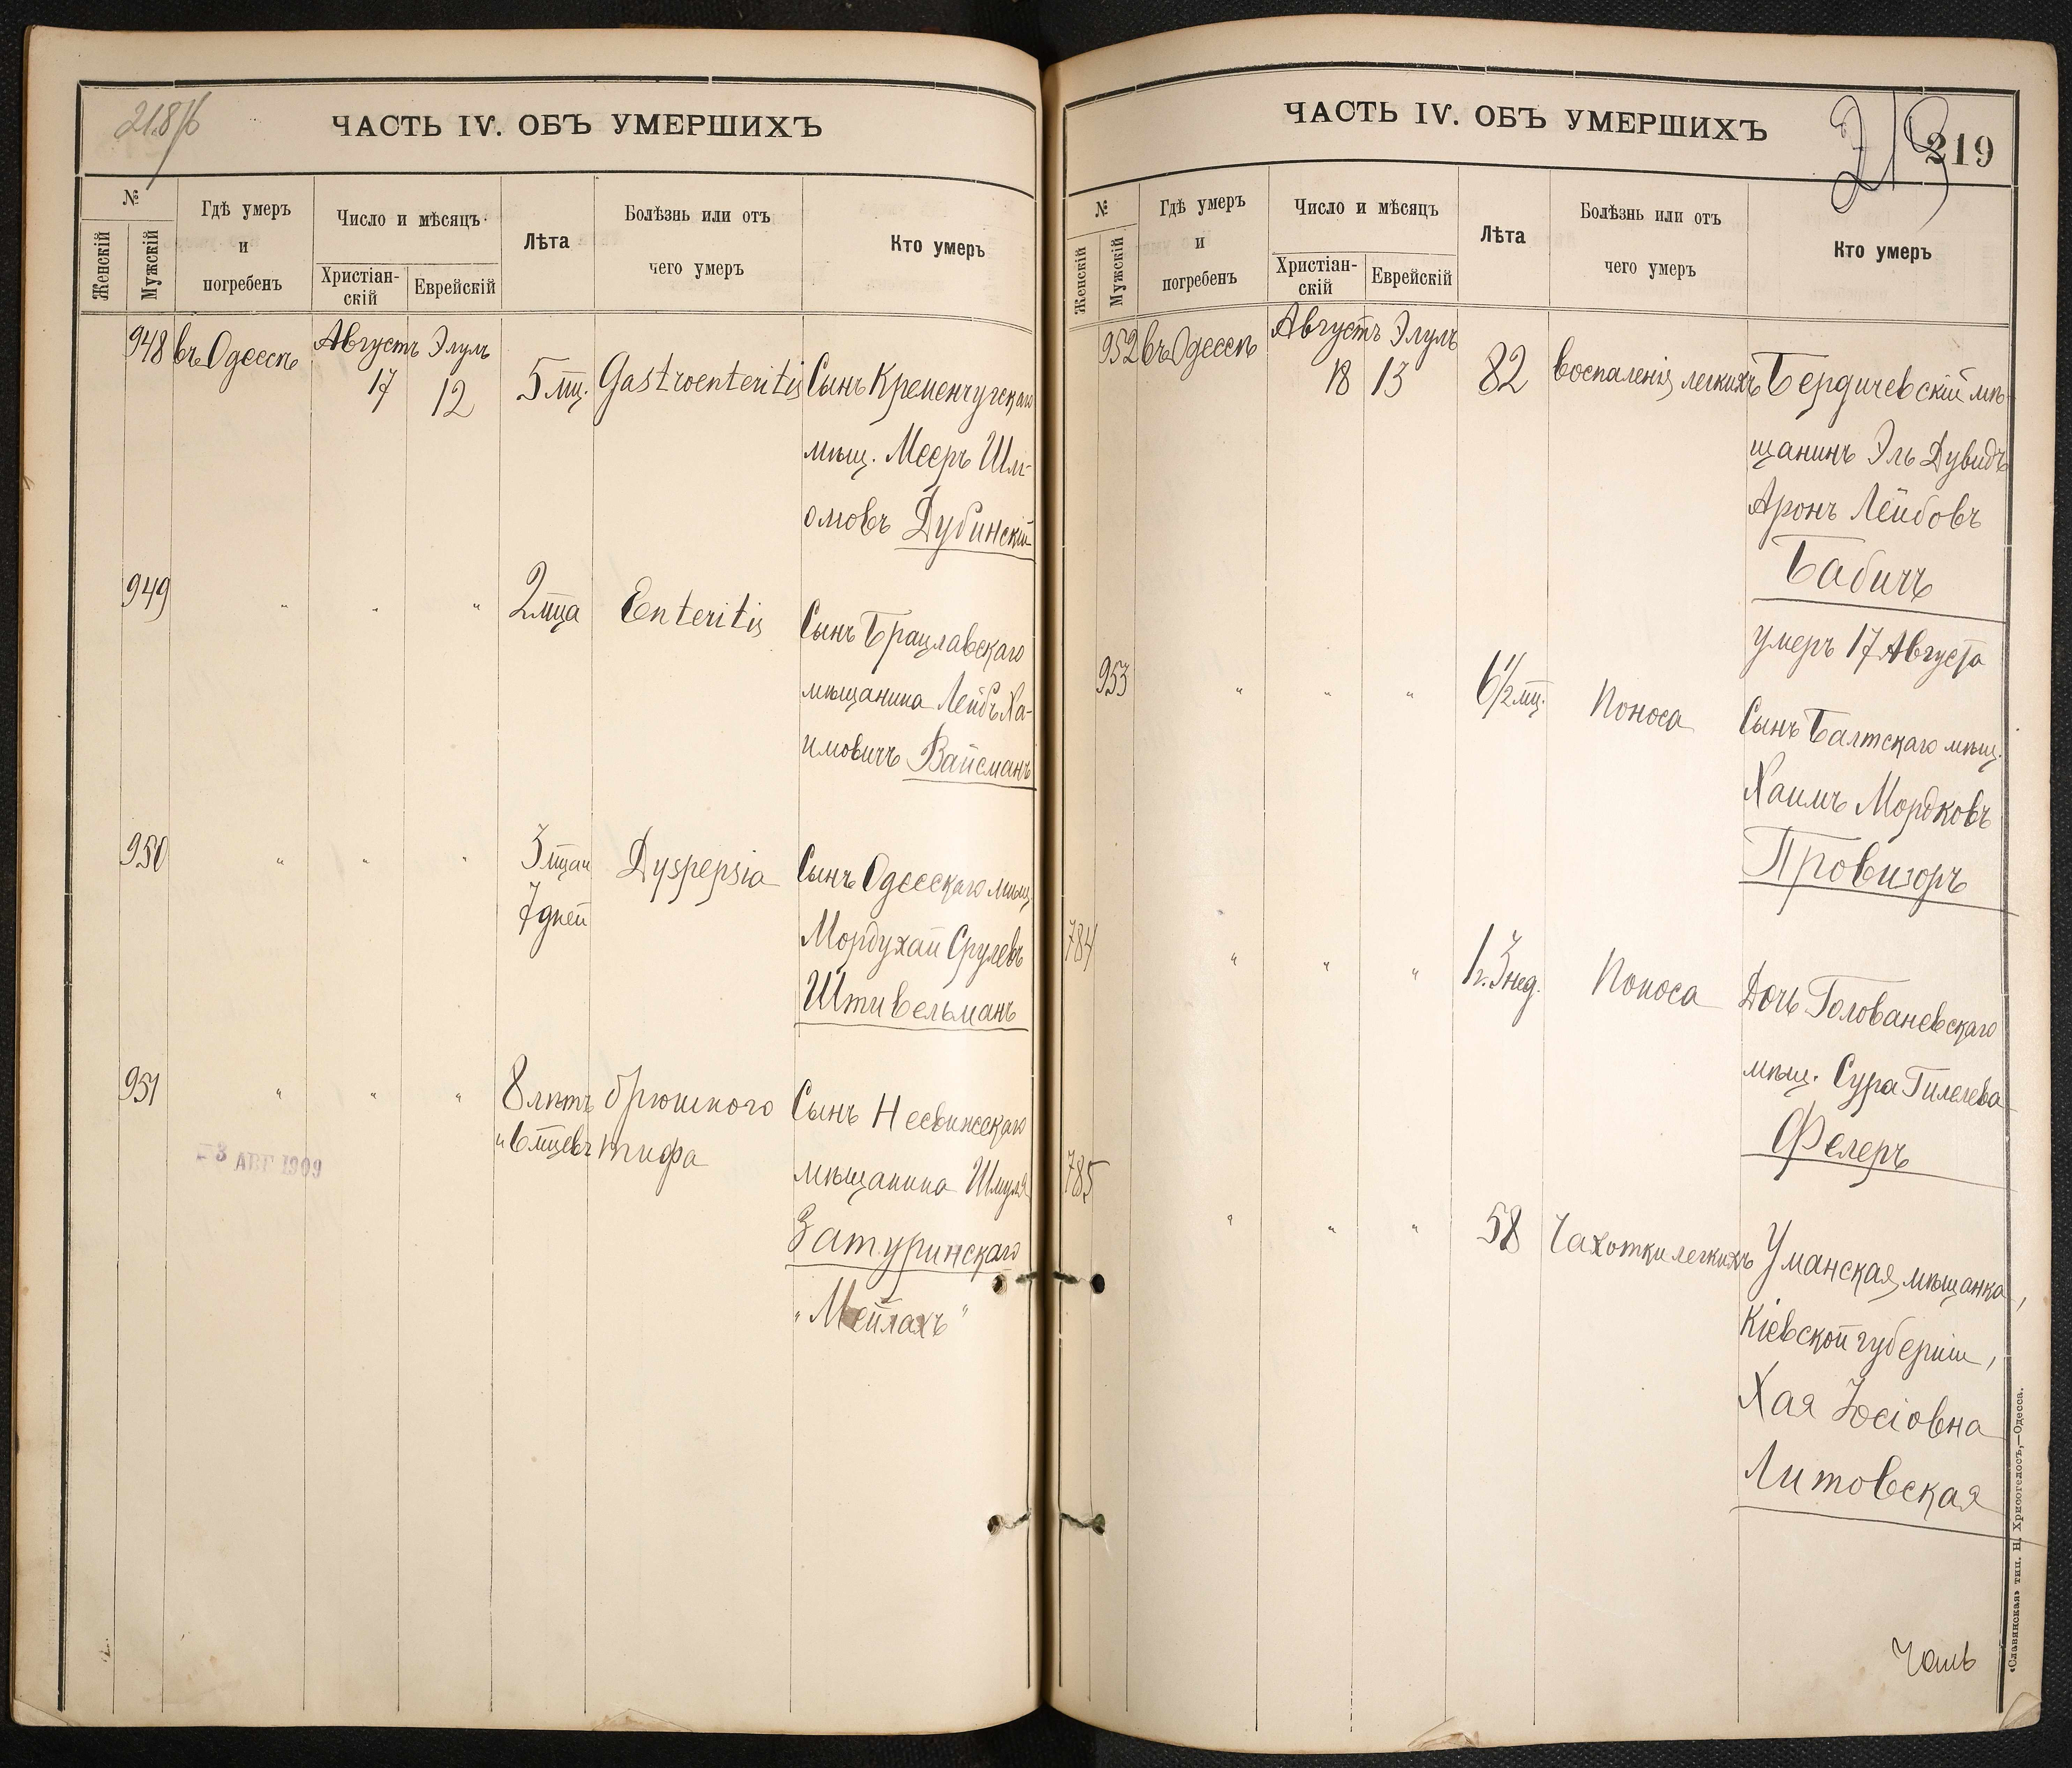 218/б
ЧАСТЬ IV. ОБЪ УМЕРШИХЪ
№
Женскій
Мужскій
Гдѣ умеръ
и
погребенъ
Число и мѣсяцъ
Христіан-
скій
Еврейскій
Лѣта
Болѣзнь или отъ
чего умеръ
Кто умеръ
948 въ Одессѣ Августъ Элулъ
17 12 5 мц. Gastroenteritis Сынъ Кременчугскаго
мѣщ. Мееръ Шл-
омовъ Дубинскій
949 " " " 2 мца Enteritis Сынъ Брацлавскаго
мѣщанина Лейбъ Ха-
имовичъ Вайсманъ
950 " " " 3 мцаи Dyspepsia Сынъ Одесскаго мѣщ.
7 дней Мордухай Срулевъ
Штивельманъ
951 " " " 8 лѣтъ брюшного Сынъ Несвижскаго
и 6 мцевъ тифа
мѣщанина Шмуля
Затуринскаго
"Мейлахъ"
3 АВГ 1909
ЧАСТЬ IV. ОБЪ УМЕРШИХЪ
219
219
№
Женскій
Мужскій
Гдѣ умеръ
и
погребенъ
Число и мѣсяцъ
Христіан-
скій
Еврейскій
Лѣта
Болѣзнь или отъ
чего умеръ
Кто умеръ
952 въ Одессѣ Августъ Элулъ
18 13 82 воспаленія легкихъ Бердичевскій мѣ-
щанинъ Эль Дувидъ
Аронъ Лейбовъ
Бабичъ
умеръ 17 Августа
953 " " " 6 1/2 мц. Поноса Сынъ Балтскаго мѣщ.
Хаимъ Мордковъ
Провизоръ
784 " " " 1 г. 3 нед. Поноса Дочь Голованевскаго
мѣщ. Сура Гилелева
Фелеръ
785 " " " 58 Чахотки легкихъ Уманская мѣщанка,
Кіевской губерніи,
Хая Іосіовна
Литовская
«Славянская» тип. Н. Хрисогелосъ,—Одесса.